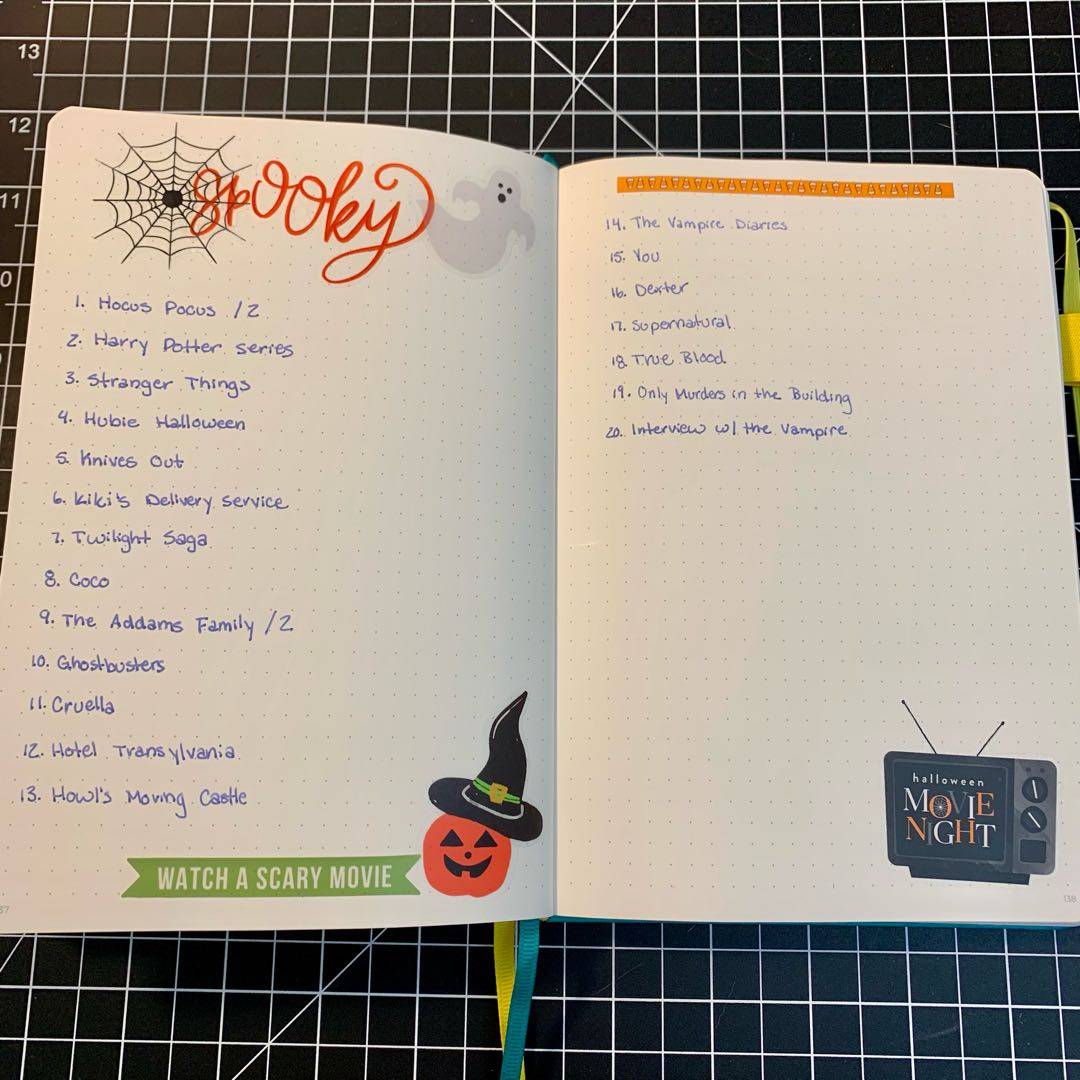 13
12
11
0
spooky
1. Hocus Pocus /2
2. Harry Potter series
3. Stranger Things
4. Hubie Halloween
5. Knives Out
6. Kiki's Delivery service
7. Twilight Saga
8. Coco
9. The Addams Family /2
10. Ghostbusters
11. Cruella
12. Hotel Transylvania
13. Howl's Moving Castle
WATCH A SCARY MOVIE
37
14. The Vampire Diaries
15. You
16. Dexter
17. Supernatural
18. True Blood
19. Only Murders in the Building
20. Interview w/ the Vampire
halloween
MOVIE
NIGHT
138